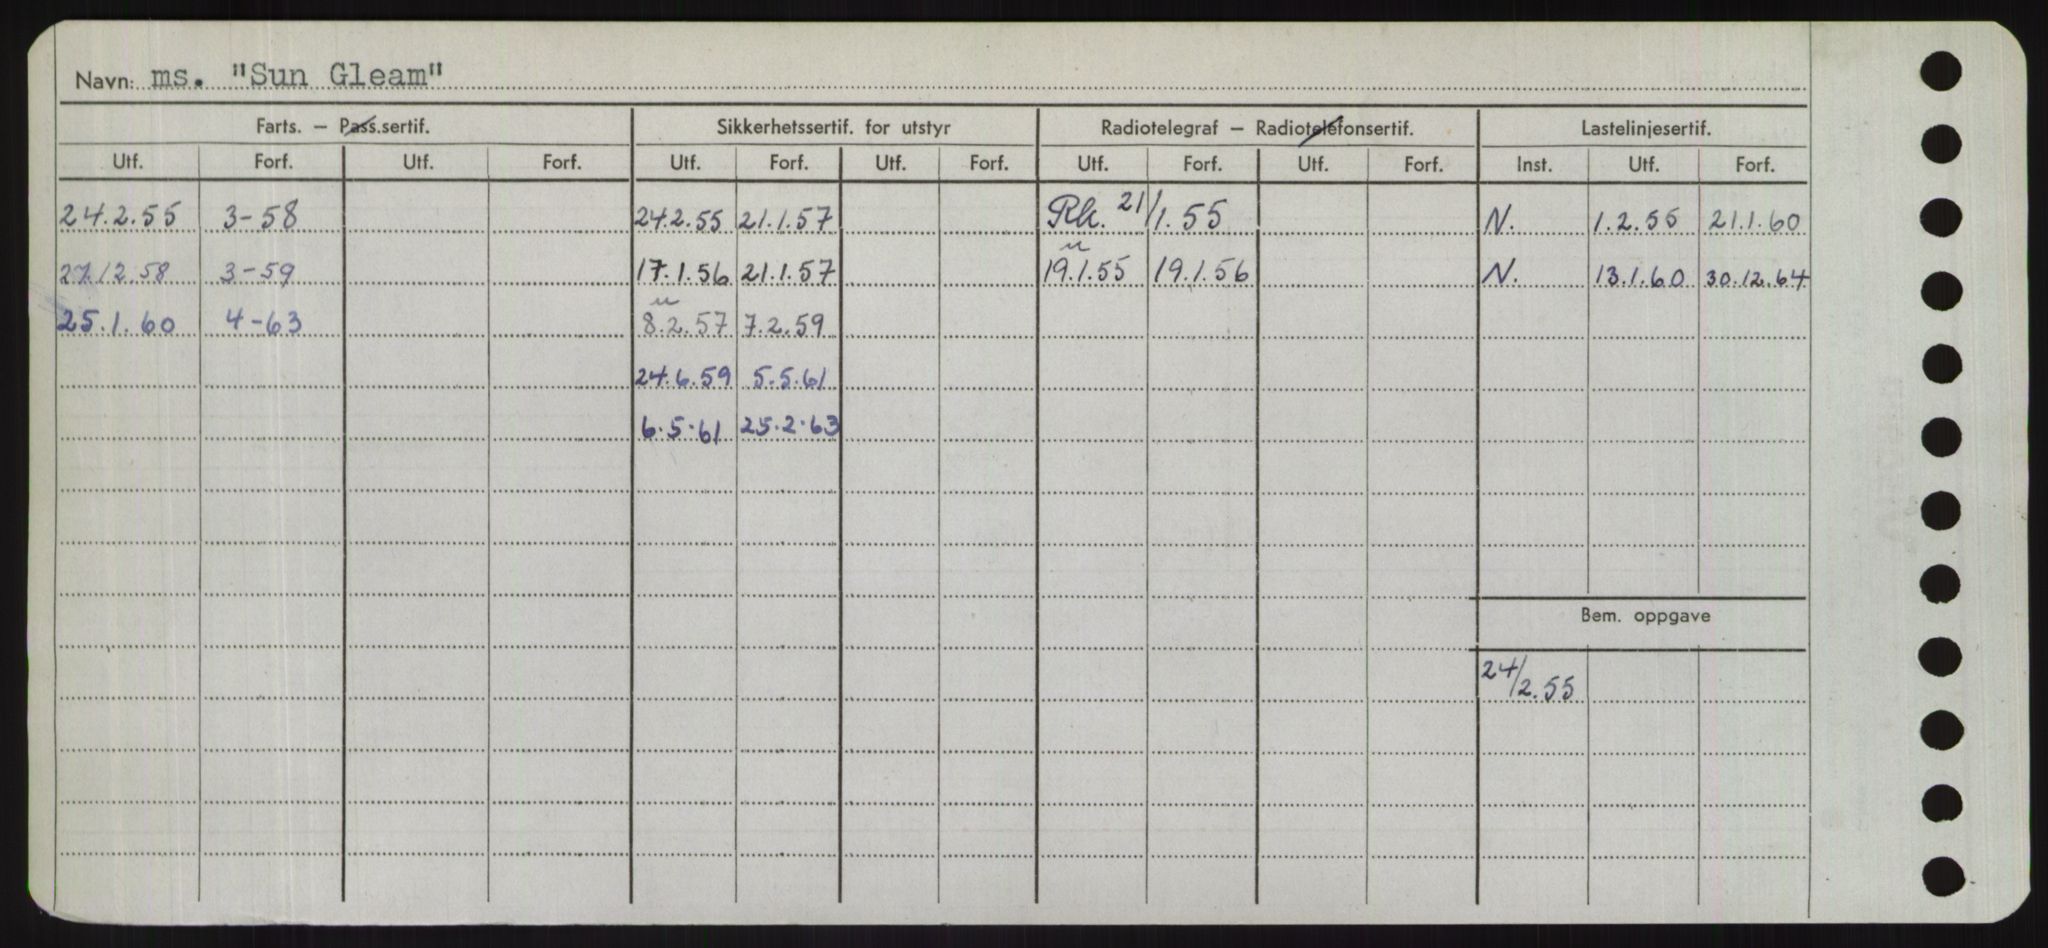 Navn: ms. "Sun Gleam"
Farts. – Pass.sertif. Sikkerhetssertif. for utstyr Radiotelegraf – Radiotelefonsertif. Lastelinjesertif.
Utf. Forf. Utf. Forf. Utf. Forf. Utf. Forf. Utf. Forf. Utf. Forf. Inst. Utf. Forf.
24.2.55 3-58 24.2.55 21.1.57 Rk. 21/1.55 N. 1.2.55 21.1.60
u
27.12.58 3-59 17.1.56 21.1.57 19.1.55 19.1.56 N. 13.1.60 30.12.64
u
25.1.60 4-63 8.2.57 7.2.59
24.6.59 5.5.61
6.5.61 25.2.63
Bem. oppgave
24/2.55